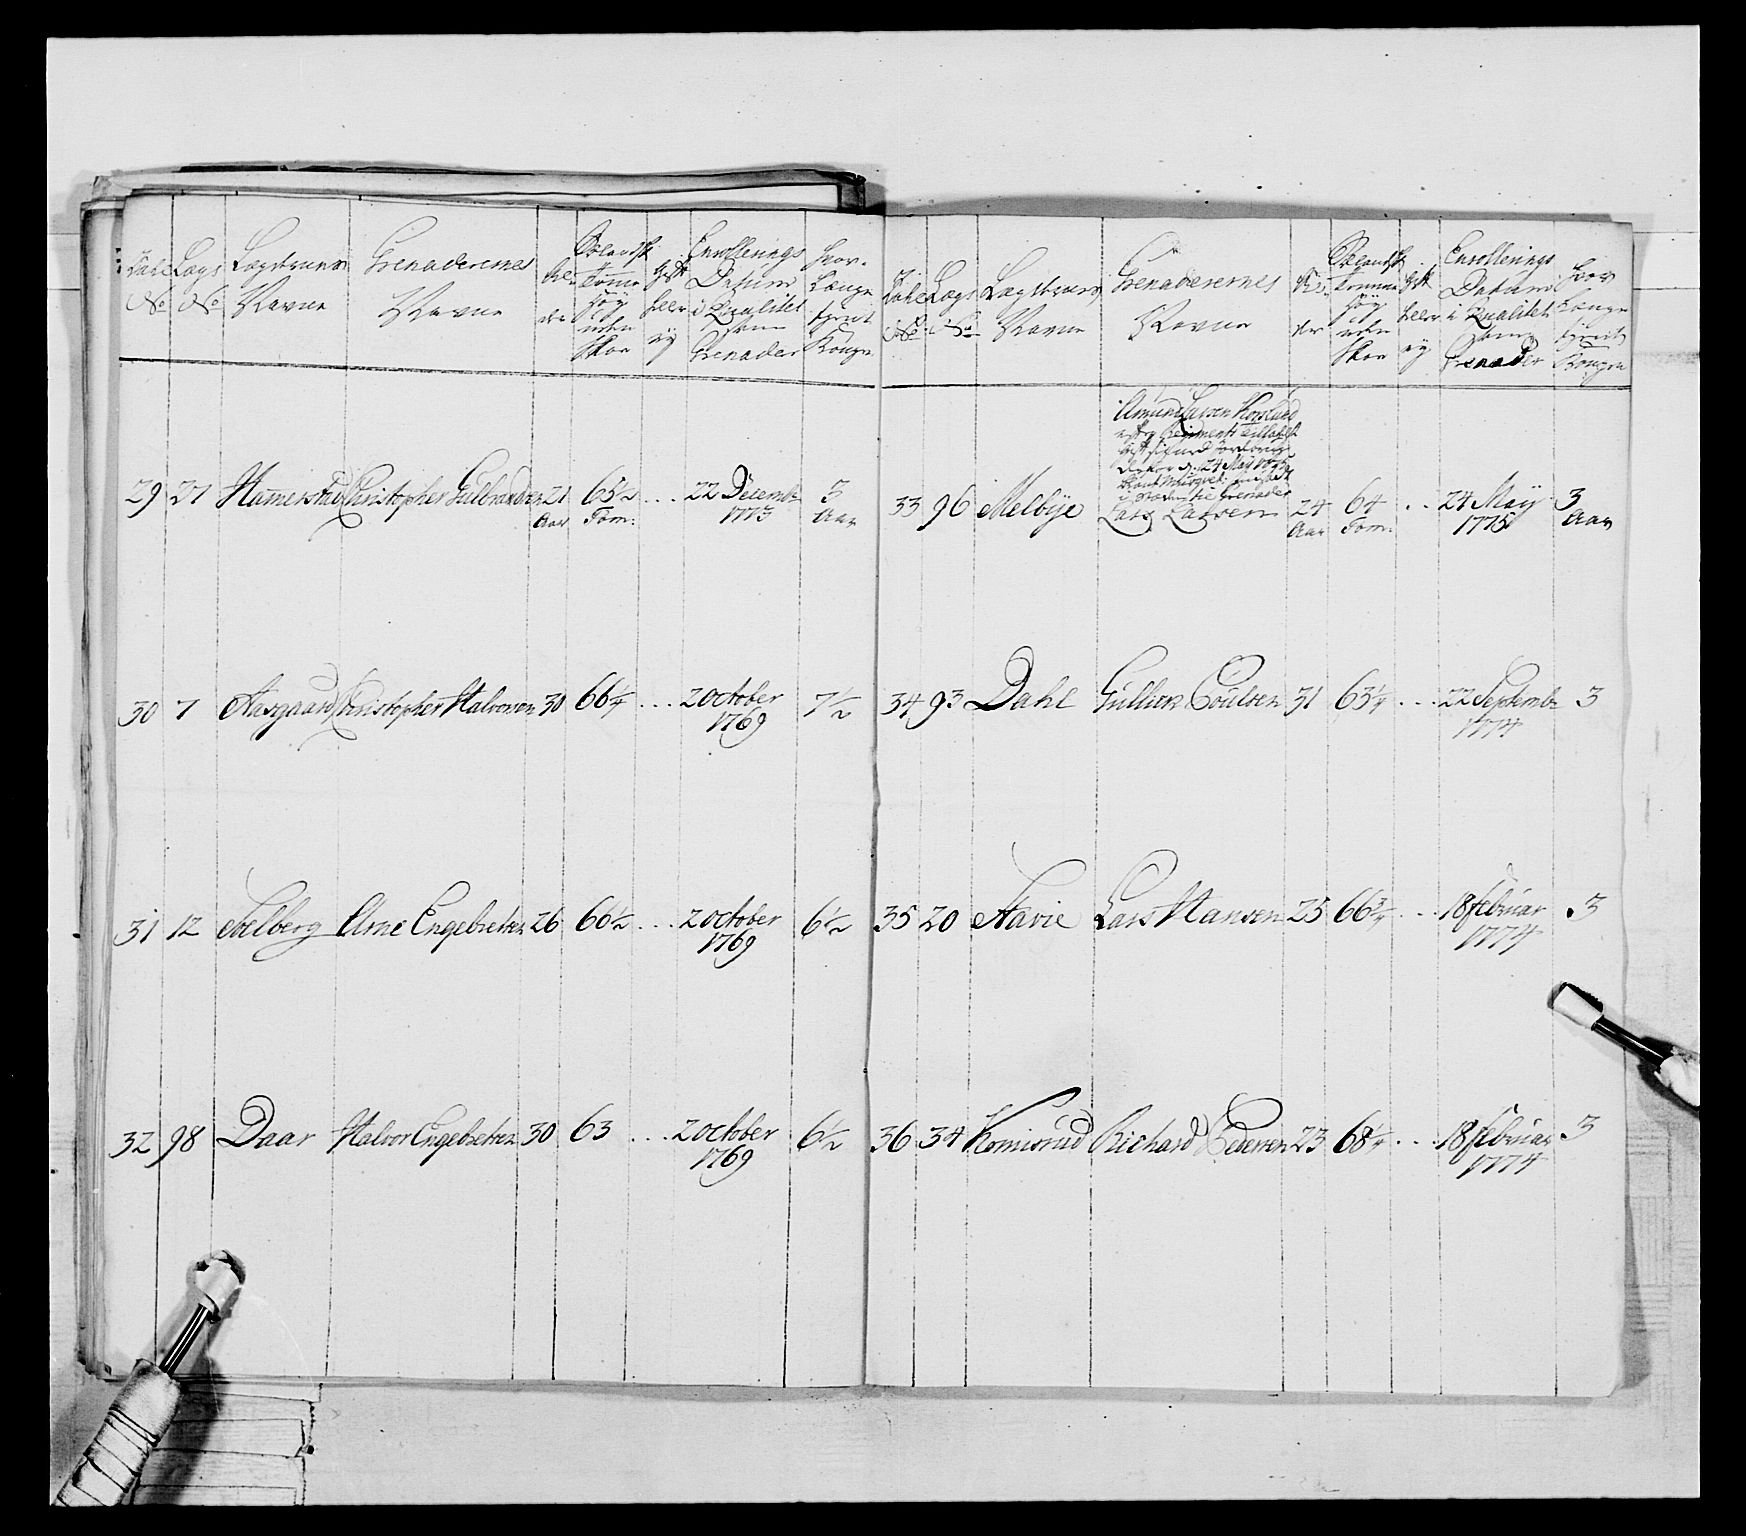 Tale No
Lægs No
Lægdernes Navne
Grenaderernes Navne
Alder
Sielandsk Tomer høy uden Skoe
Gift heller ey
Enrollerings Datum i Qualitet som Grenader
Hvor Længe tient Kongen
29 27 Hamerstad Christopher Gulbrandsen 21 Aar 65 1/2 Tom: ... 22 Decembr 1773 3 Aar
30 7 Aasgaard Christopher Halvorsen 30 66 1/4 ... 2 October 1769 7 1/2
31 12 Solberg Arne Engebretsen 26 60 1/2 ... 2 October 1769 6 1/2
32 98 Daar Halvor Engebretsen 30 63 ... 2 October 1769 6 1/2
Tale No
Lægs No
Lægdernes Navne
Grenaderernes Navne
Alder
Sielandsk Tomer høy uden Skoe
Gift heller ey
Enrollerings Datum i Qualitet som Grenader
Hvor Længe tient Kongen
Amund Larsen
efter Regiments Tilladelse
24 May 1775
i Steden is Grenader
33 96 Melbÿe Lars Larsen 24 Aar 64 Tom: .. 24 Maÿ 1775 3 Aar
34 93 Dahl Gullich Poulsen 31 63 1/4 ... 22 Septembr 1774 3
35 20 Havie Lars Hansen 25 66 3/4 ... 18 februar 1774 3
36 34 Komisrud Richard Pedersen 23 68 1/4 ... 18 februar 1774 3